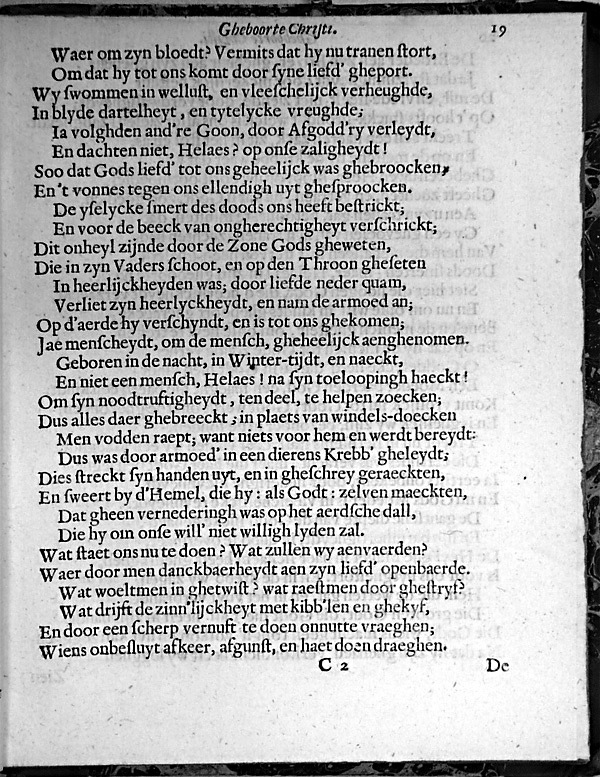 Gheboorte Chriſti. 19
Waer om zyn bloedt? Vermits dat hy nu tranen ſtort,
Om dat hy tot ons komt door ſyne liefd' gheport.
Wy ſwommen in welluſt, en vleeſchelijck verheughde,
In blyde dartelheyt, en tytelycke vreughde;
Ia volghden and're Goon, door Afgodd'ry verleydt,
En dachten niet, Helaes? op onſe zaligheydt!
Soo dat Gods liefd' tot ons geheelijck was ghebroocken,
En 't vonnes tegen ons ellendigh uyt gheſproocken.
De yſelycke ſmert des doods ons heeft beſtrickt;
En voor de beeck van ongherechtigheyt verſchrickt;
Dit onheyl zijnde door de Zone Gods gheweten,
Die in zyn Vaders ſchoot, en op den Throon gheſeten
In heerlijckheyden was; door liefde neder quam,
Verliet zyn heerlyckheydt, en nam de armoed an;
Op d'aerde hy verſchyndt, en is tot ons ghekomen;
Jae menſcheydt, om de menſch, gheheelijck aenghenomen.
Geboren in de nacht, in Winter-tijdt, en naeckt,
En niet een menſch, Helaes! na ſyn toeloopingh haeckt!
Om ſyn noodtruftigheydt, ten deel, te helpen zoecken;
Dus alles daer ghebreeckt; in plaets van windels-doecken
Men vodden raept; want niets voor hem en werdt bereydt:
Dus was door armoed' in een dierens Krebb' gheleydt;
Dies ſtreckt ſyn handen uyt, en in gheſchrey geraeckten,
En ſweert by d'Hemel, die hy: als Godt: zelven maeckten,
Dat gheen vernederingh was op het aerdſche dall,
Die hy om onſe will' niet willigh lyden zal.
Wat ſtaet ons nu te doen? Wat zullen wy aenvaerden?
Waer door men danckbaerheydt aen zyn liefd' openbaerde.
Wat woeltmen in ghetwiſt? wat raeſtmen door gheſtryf?
Wat drijft de zinn'lijckheyt met kibb'len en ghekyf,
En door een ſcherp vernuft te doen onnutte vraeghen;
Wiens onbeſluyt afkeer, afgunſt, en haet doen draeghen.
C 2 De